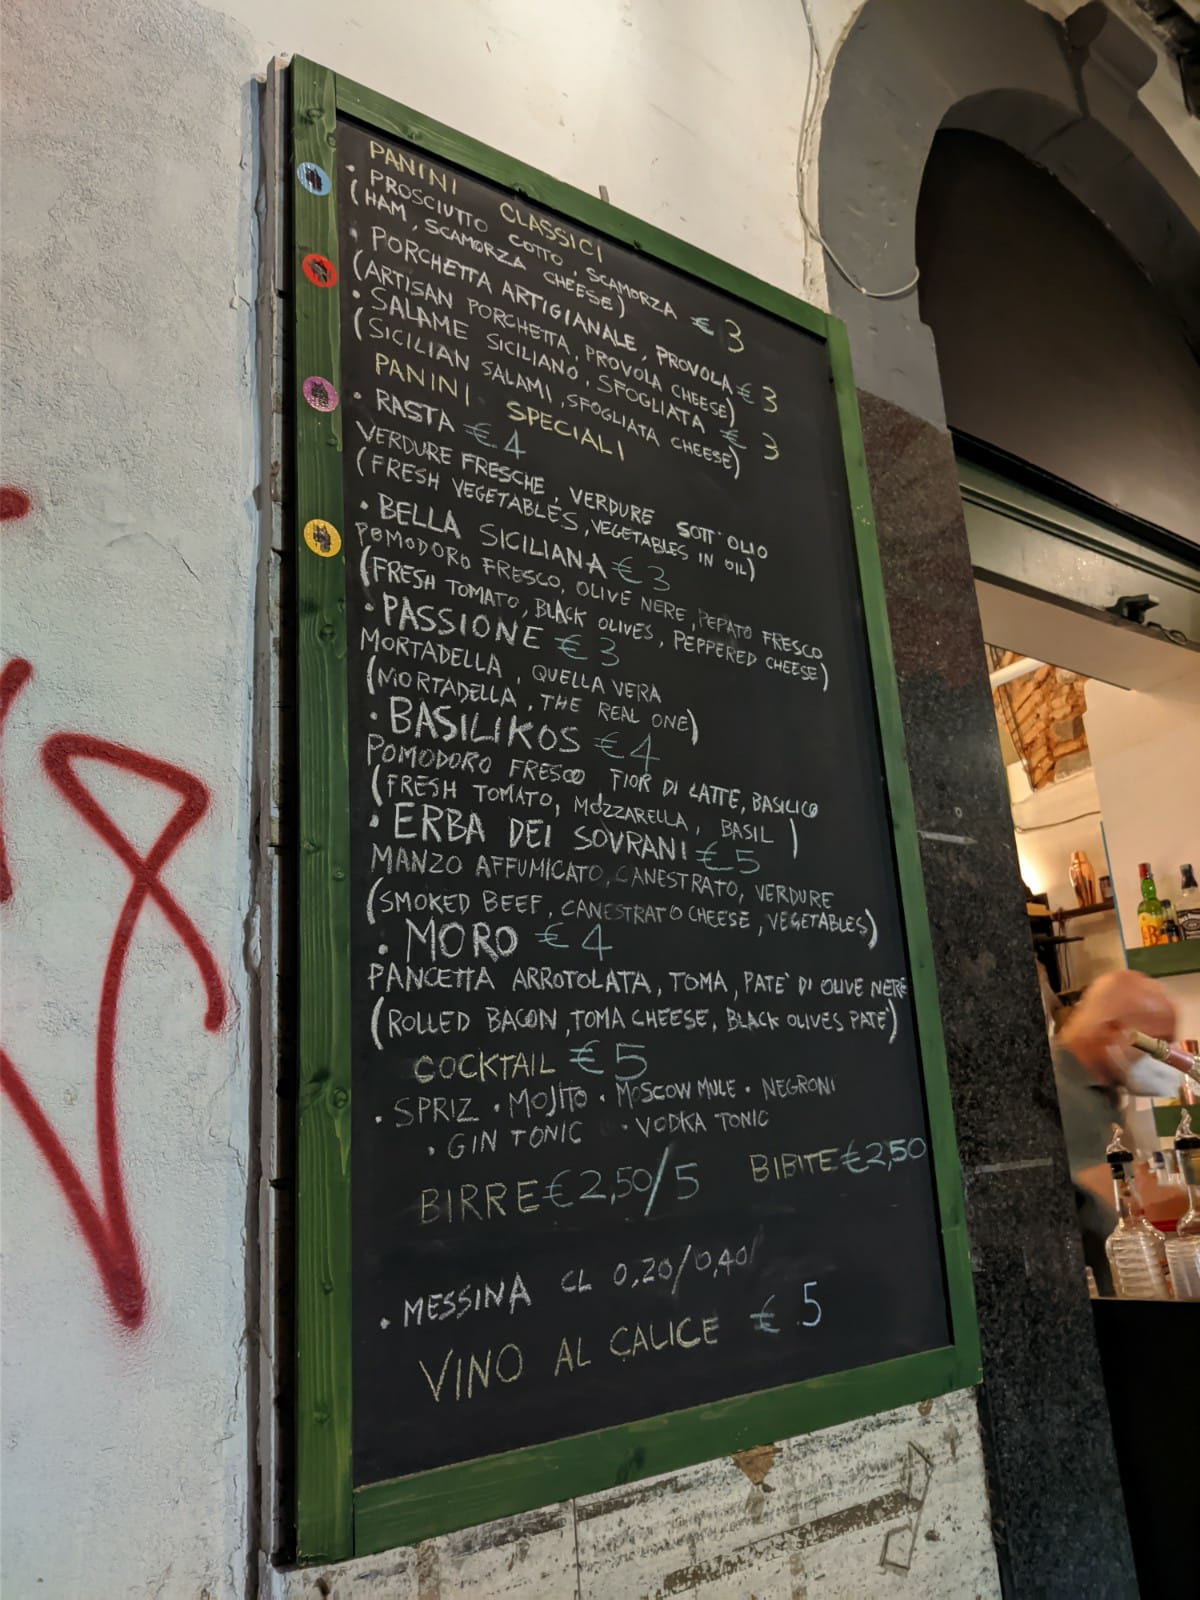 PANINI CLASSICI
• PROSCIUTTO COTTO, SCAMORZA € 3
(HAM, SCAMORZA CHEESE)
• PORCHETTA ARTIGIANALE, PROVOLA € 3
(ARTISAN PORCHETTA, PROVOLA CHEESE)
• SALAME SICILIANO, SFOGLIATA € 3
(SICILIAN SALAMI, SFOGLIATA CHEESE)
PANINI SPECIALI
• RASTA € 4
VERDURE FRESCHE, VERDURE SOTT'OLIO
(FRESH VEGETABLES, VEGETABLES IN OIL)
• BELLA SICILIANA € 3
POMODORO FRESCO, OLIVE NERE, PEPATO FRESCO
(FRESH TOMATO, BLACK OLIVES, PEPPERED CHEESE)
• PASSIONE € 3
MORTADELLA, QUELLA VERA
(MORTADELLA, THE REAL ONE)
• BASILIKOS € 4
POMODORO FRESCO FIOR DI LATTE, BASILICO
(FRESH TOMATO, MOZZARELLA, BASIL)
• ERBA DEI SOVRANI € 5
MANZO AFFUMICATO, CANESTRATO, VERDURE
(SMOKED BEEF, CANESTRATO CHEESE, VEGETABLES)
• MORO € 4
PANCETTA ARROTOLATA, TOMA, PATE' DI OLIVE NERE
(ROLLED BACON, TOMA CHEESE, BLACK OLIVES PATE')
COCKTAIL € 5
• SPRIZ • MOJITO • MOSCOW MULE • NEGRONI
• GIN TONIC • VODKA TONIC
BIRRE € 2,50/5 BIBITE € 2,50
• MESSINA CL 0,20/0,40
VINO AL CALICE € 5